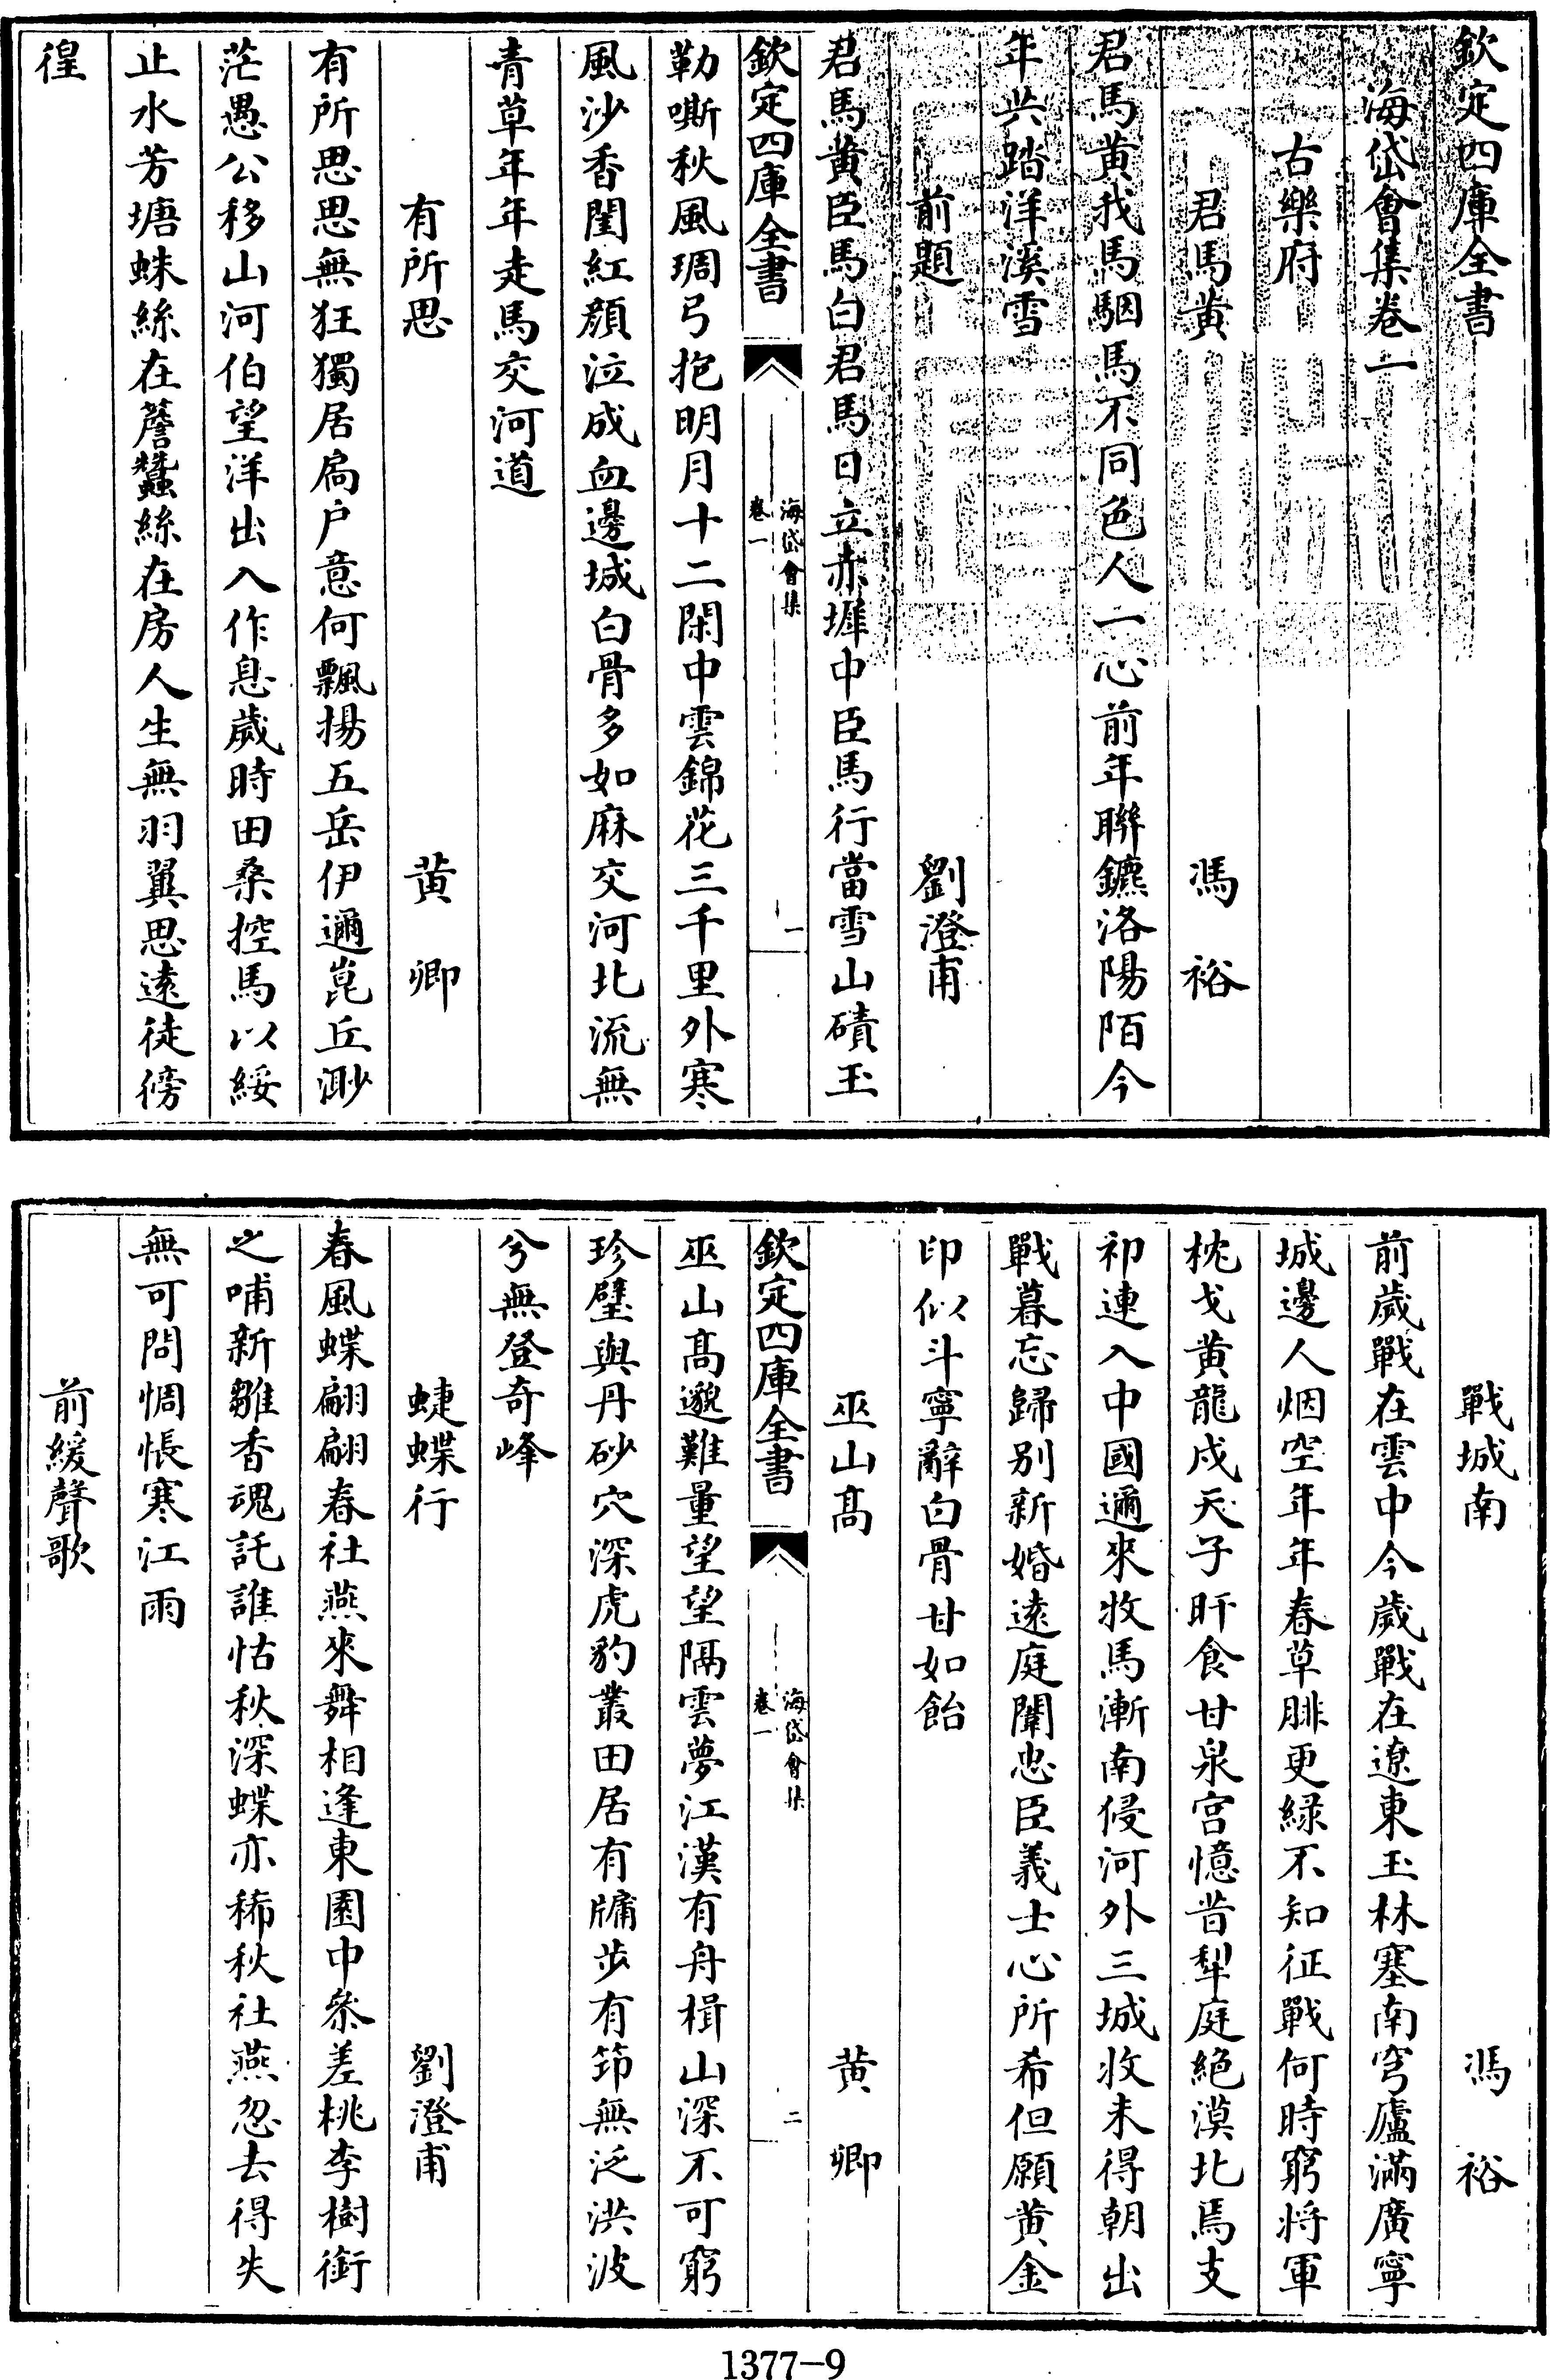 欽定四庫全書
海岱會集卷一
古樂府
君馬黄　馮裕
君馬黄我馬駰馬不同色人一心前年聯鑣洛陽陌今
年共踏洋溪雪
前題　劉澄甫
君馬黄臣馬白君馬日立赤墀中臣馬行當雪山磧玉
欽定四庫全書　海岱會集　卷一　一
勒嘶秋風琱弓抱明月十二閑中雲錦花三千里外寒
風沙香閨紅顔泣成血邊城白骨多如麻交河北流無
青草年年走馬交河道
有所思　黄卿
有所思思無狂獨居扃户意何飄揚五岳伊邇崑丘渺
茫愚公移山河伯望洋出入作息歲時田桑控馬以綏
止水芳塘蛛絲在簷蠶絲在房人生無羽翼思遠徒傍
徨
戰城南　馮裕
前歲戰在雲中今歲戰在遼東玉林塞南穹廬滿廣寧
城邊人烟空年年春草腓更緑不知征戰何時窮將軍
枕戈黄龍戍天子旰食甘泉宫憶昔犁庭絶漠北焉支
祁連入中國邇來牧馬漸南侵河外三城收未得朝出
戰暮忘歸别新婚遠庭闈忠臣義士心所希但願黄金
印似斗寧辭白骨甘如飴
巫山髙　黄卿
欽定四庫全書　海岱會集　卷一　二
巫山髙邈難量望望隔雲夢江漢有舟楫山深不可窮
珍璧與丹砂穴深虎豹叢田居有牗步有笻無泛洪波
兮無登奇峰
蜨蝶行　劉澄甫
春風蝶翩翩春社燕來舞相逢東園中叅差桃李樹銜
之哺新雛香魂託誰怙秋深蝶亦稀秋社燕忽去得失
無可問惆悵寒江雨
前緩聲歌
1377-9